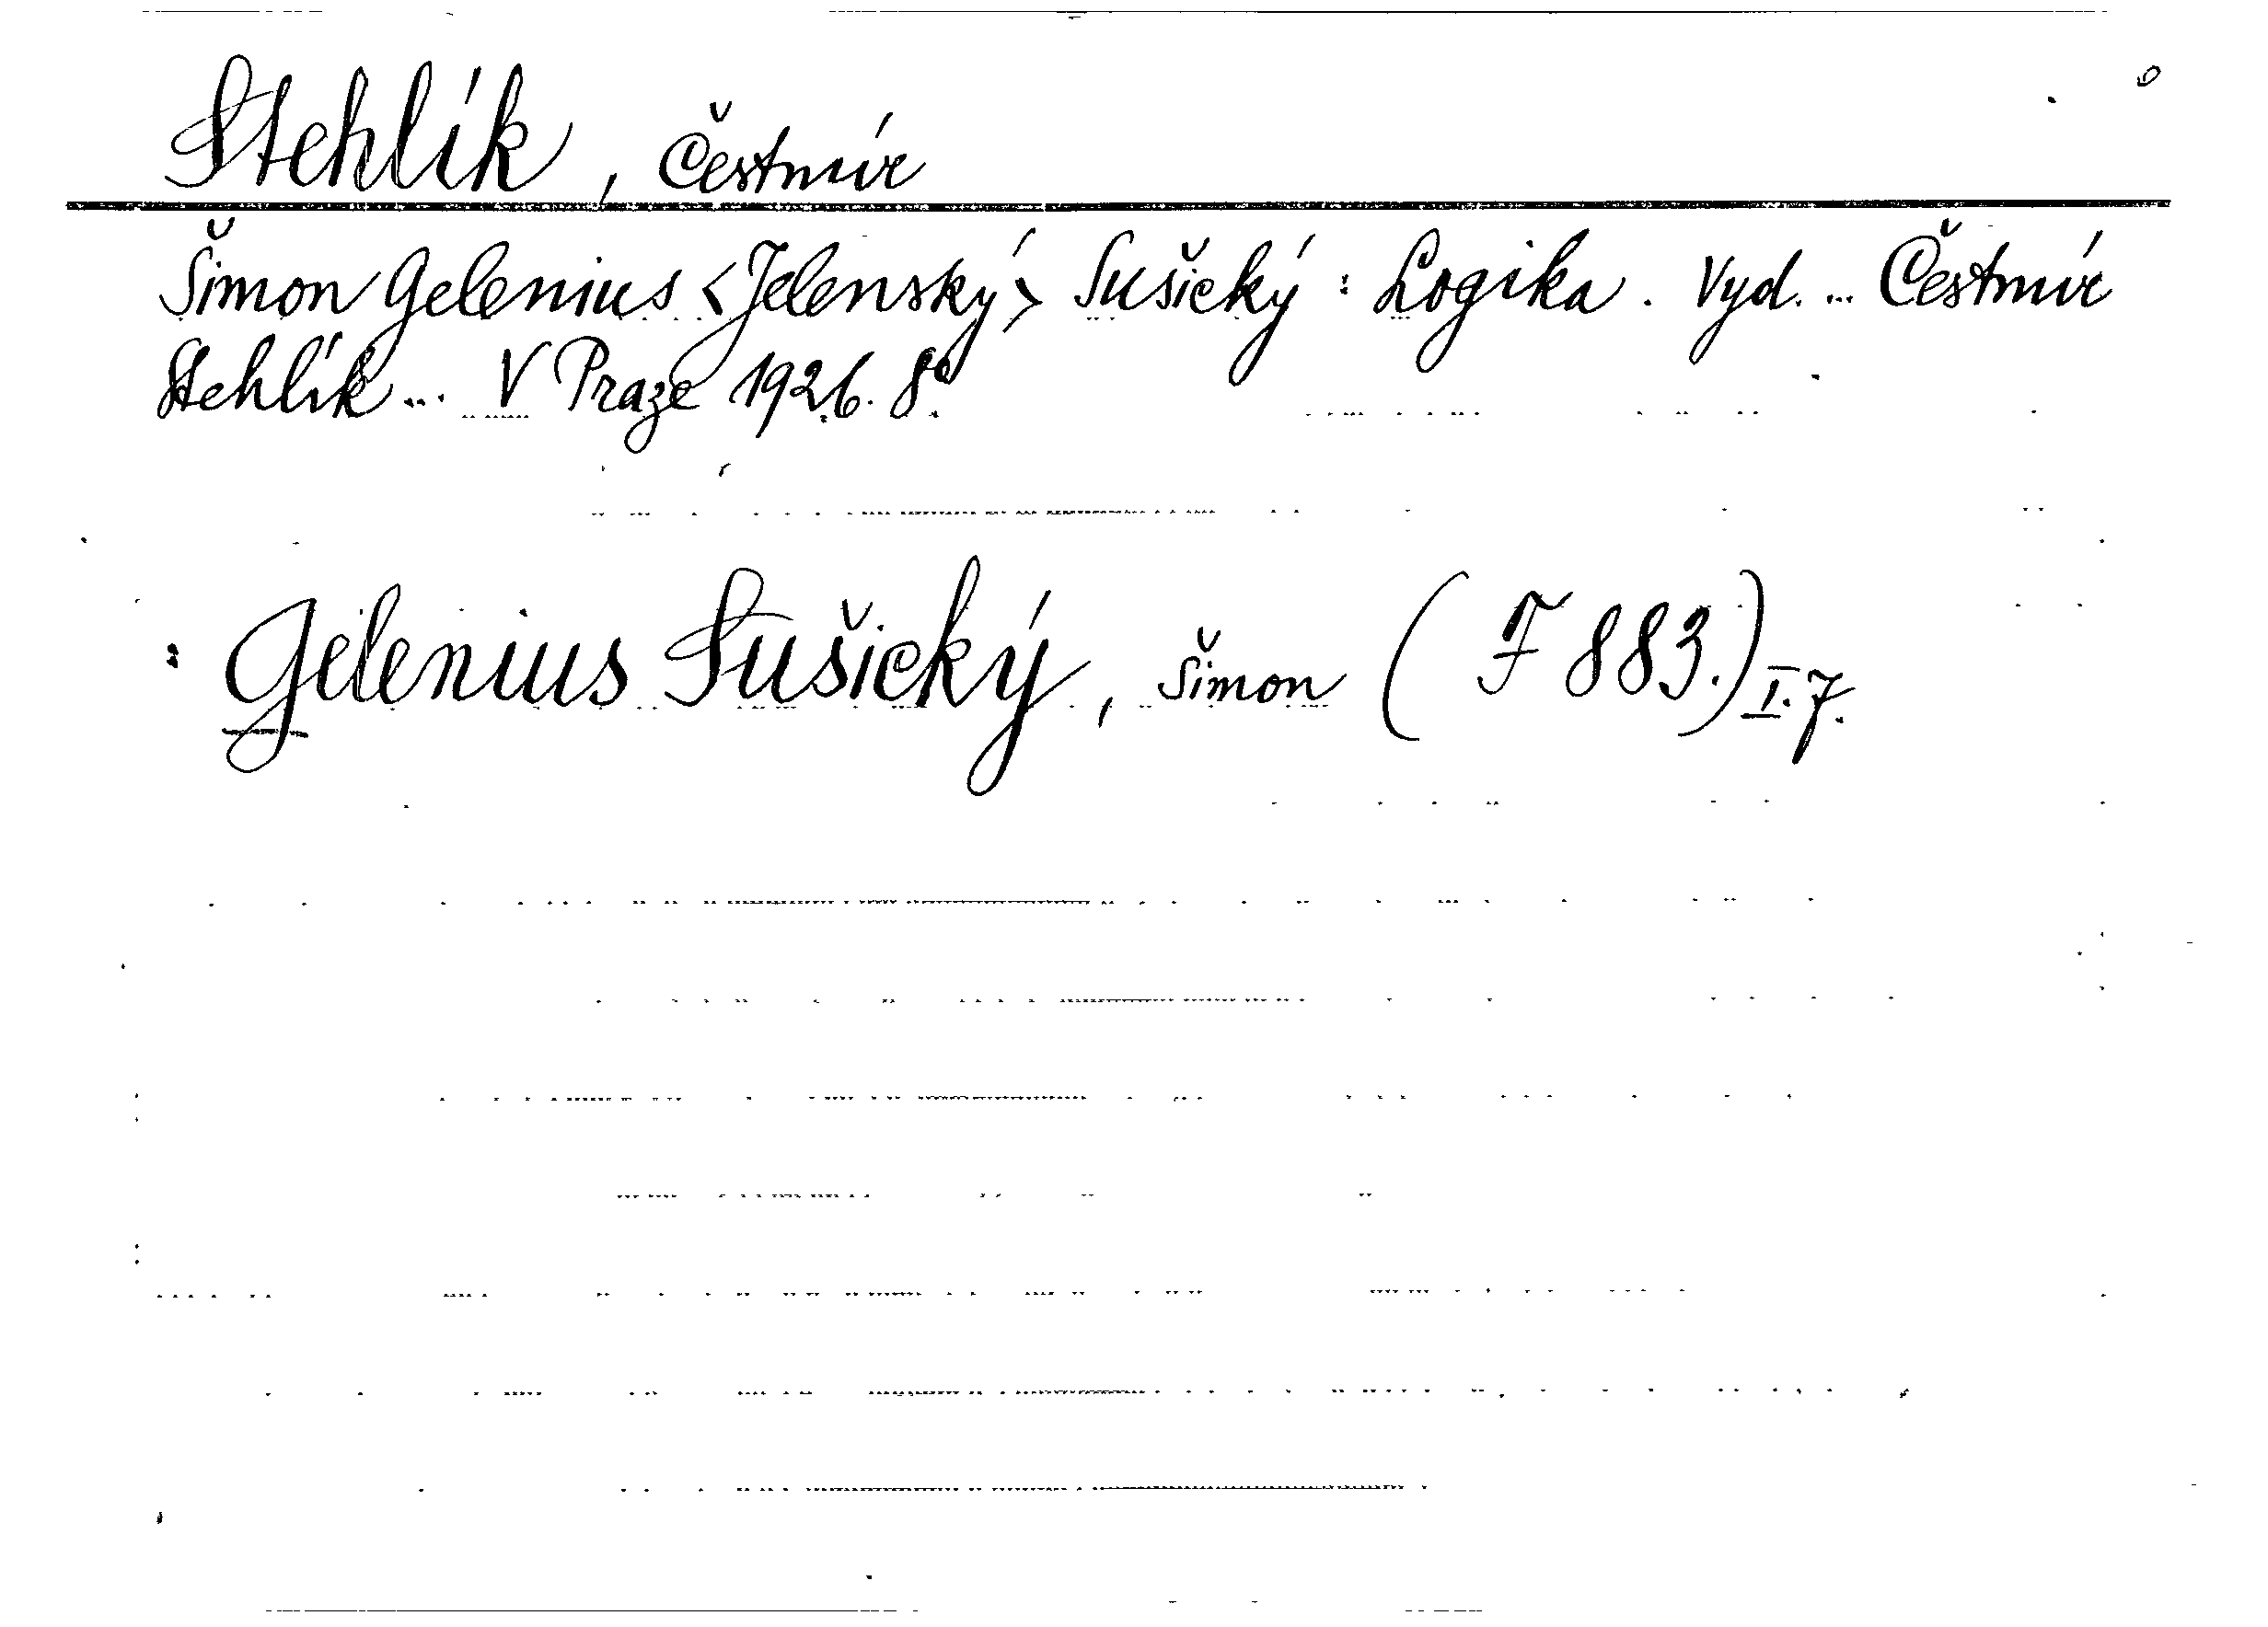 Stehlík, Čestmír
Šimon Gelenius <Jelenský> Sušický : Logika. Vyd. ... Čestmír
Stehlík ... V Praze 1926. 8°.
: Gelenius Sušický, Šimon (F 883.) I.7.